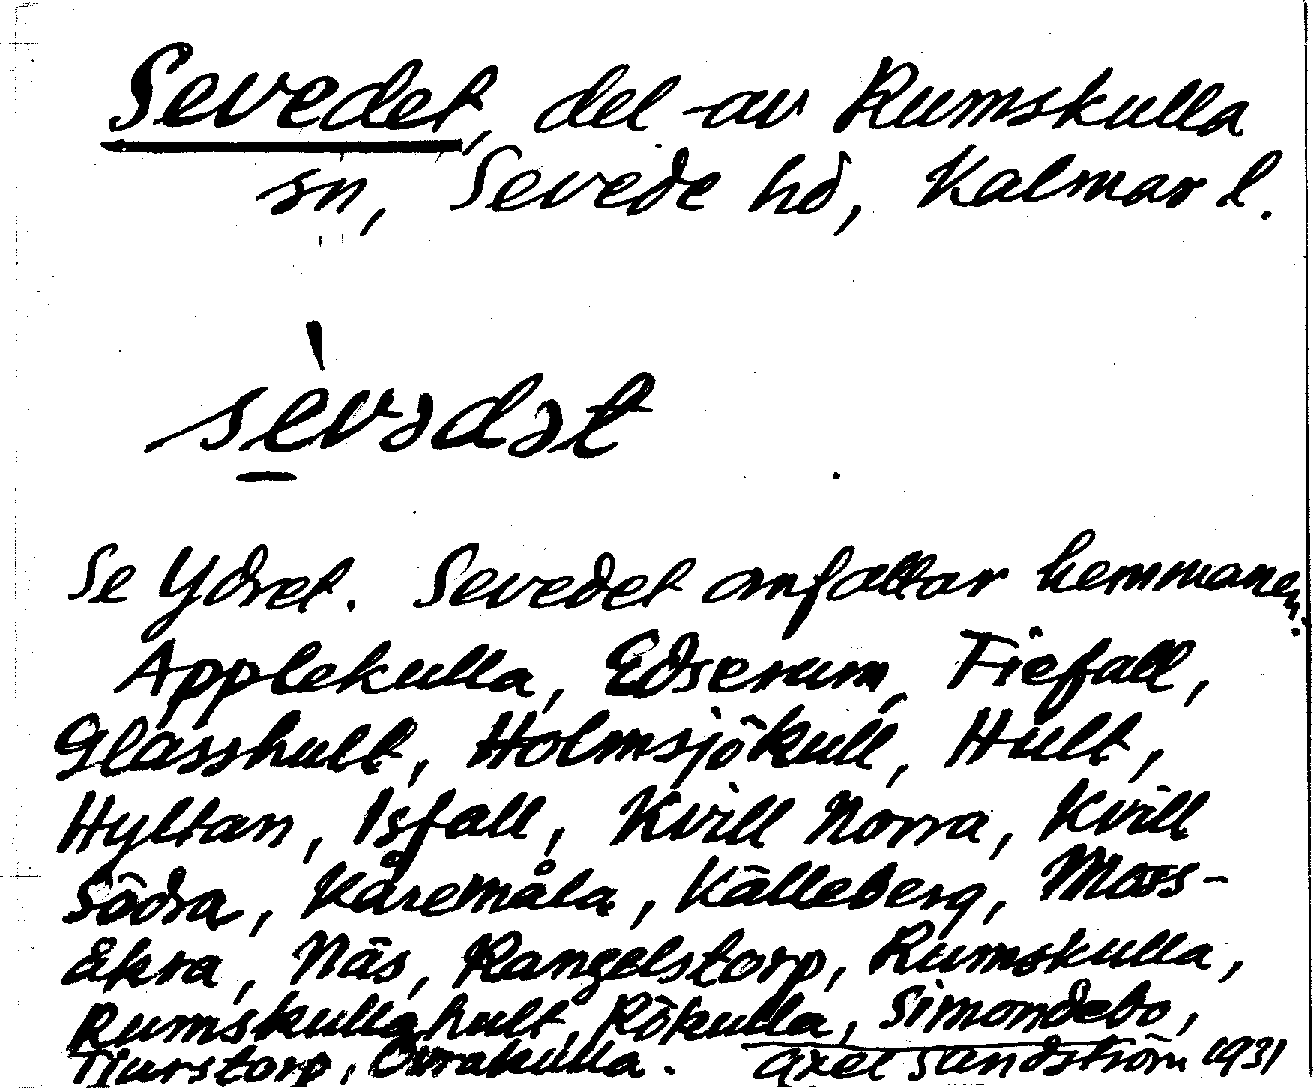 Sevedet, del av Rumskulla
sn, Sevede hd, Kalmar l.
sèvədət
Se Ydret. Sevedet omfattar hemmanen:
Applekulla, Edserum, Fiefall,
Glasshult, Holmsjökull, Hult,
Hyltan, Isfall, Kvill Norra, Kvill
Södra, Kåremåla, Källeberg, Moss-
ekra, Näs, Rangelstorp, Rumskulla,
Rumskullahult, Rökulla, Simondebo,
Tjurstorp, Ourakulla. Axel Sandström 1931